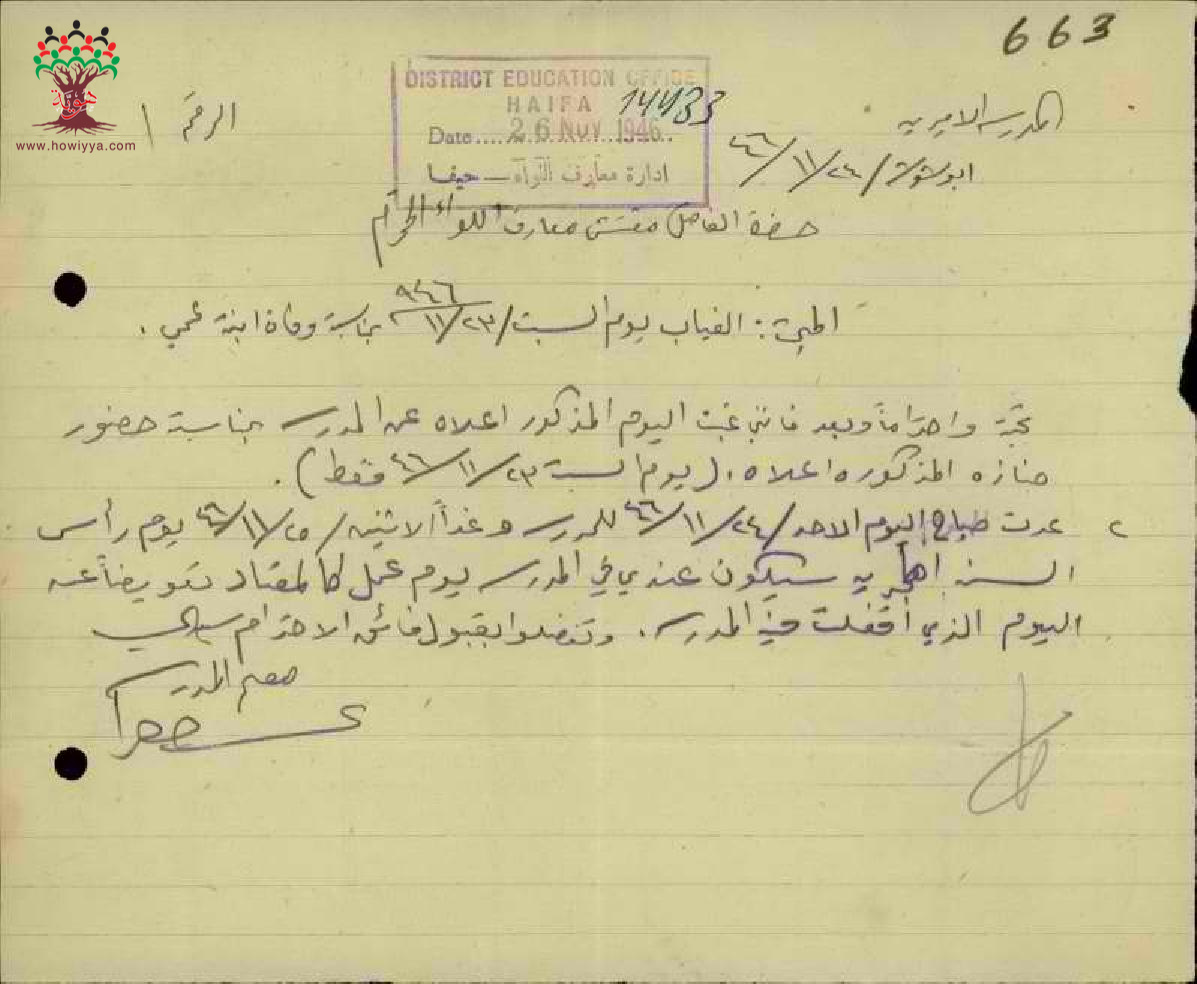 663
www.howiyya.com
DISTRICT EDUCATION OFFICE
HAIFA
14433
Date.....26 NOV 1946..
ادارة معارف اللواء – حيفا
الرقم /
المدرسه الاميريه
ابو شوشة / ٢٤/ ١١/ ٤٦
حضرة الفاضل مفتش معارف اللواء المحترم
المبحث : الغياب يوم السبت / ٢٣/ ١١/ ٩٤٦ بمناسبة وفاة ابنة عمي .
تحية واحتراماً وبعد فانني غبت اليوم المذكور اعلاه عن المدرسه بمناسبة حضور
جنازه المذكوره اعلاه . (يوم السبت ٢٣/ ١١/ ٤٦ فقط) .
٢ عدت صباح اليوم الاحد / ٢٤/ ١١/ ٤٦ للمدرسه وغداً الاثنين / ٢٥/ ١١/ ٤٦ يوم رأس
السنه الهجريه سيكون عندي في المدرسه يوم عمل كالمعتاد تعويضاً عن
اليوم الذي اقفلت فيه المدرسه . وتفضلوا بقبول فائق الاحترام سيدي
معلم المدرسه